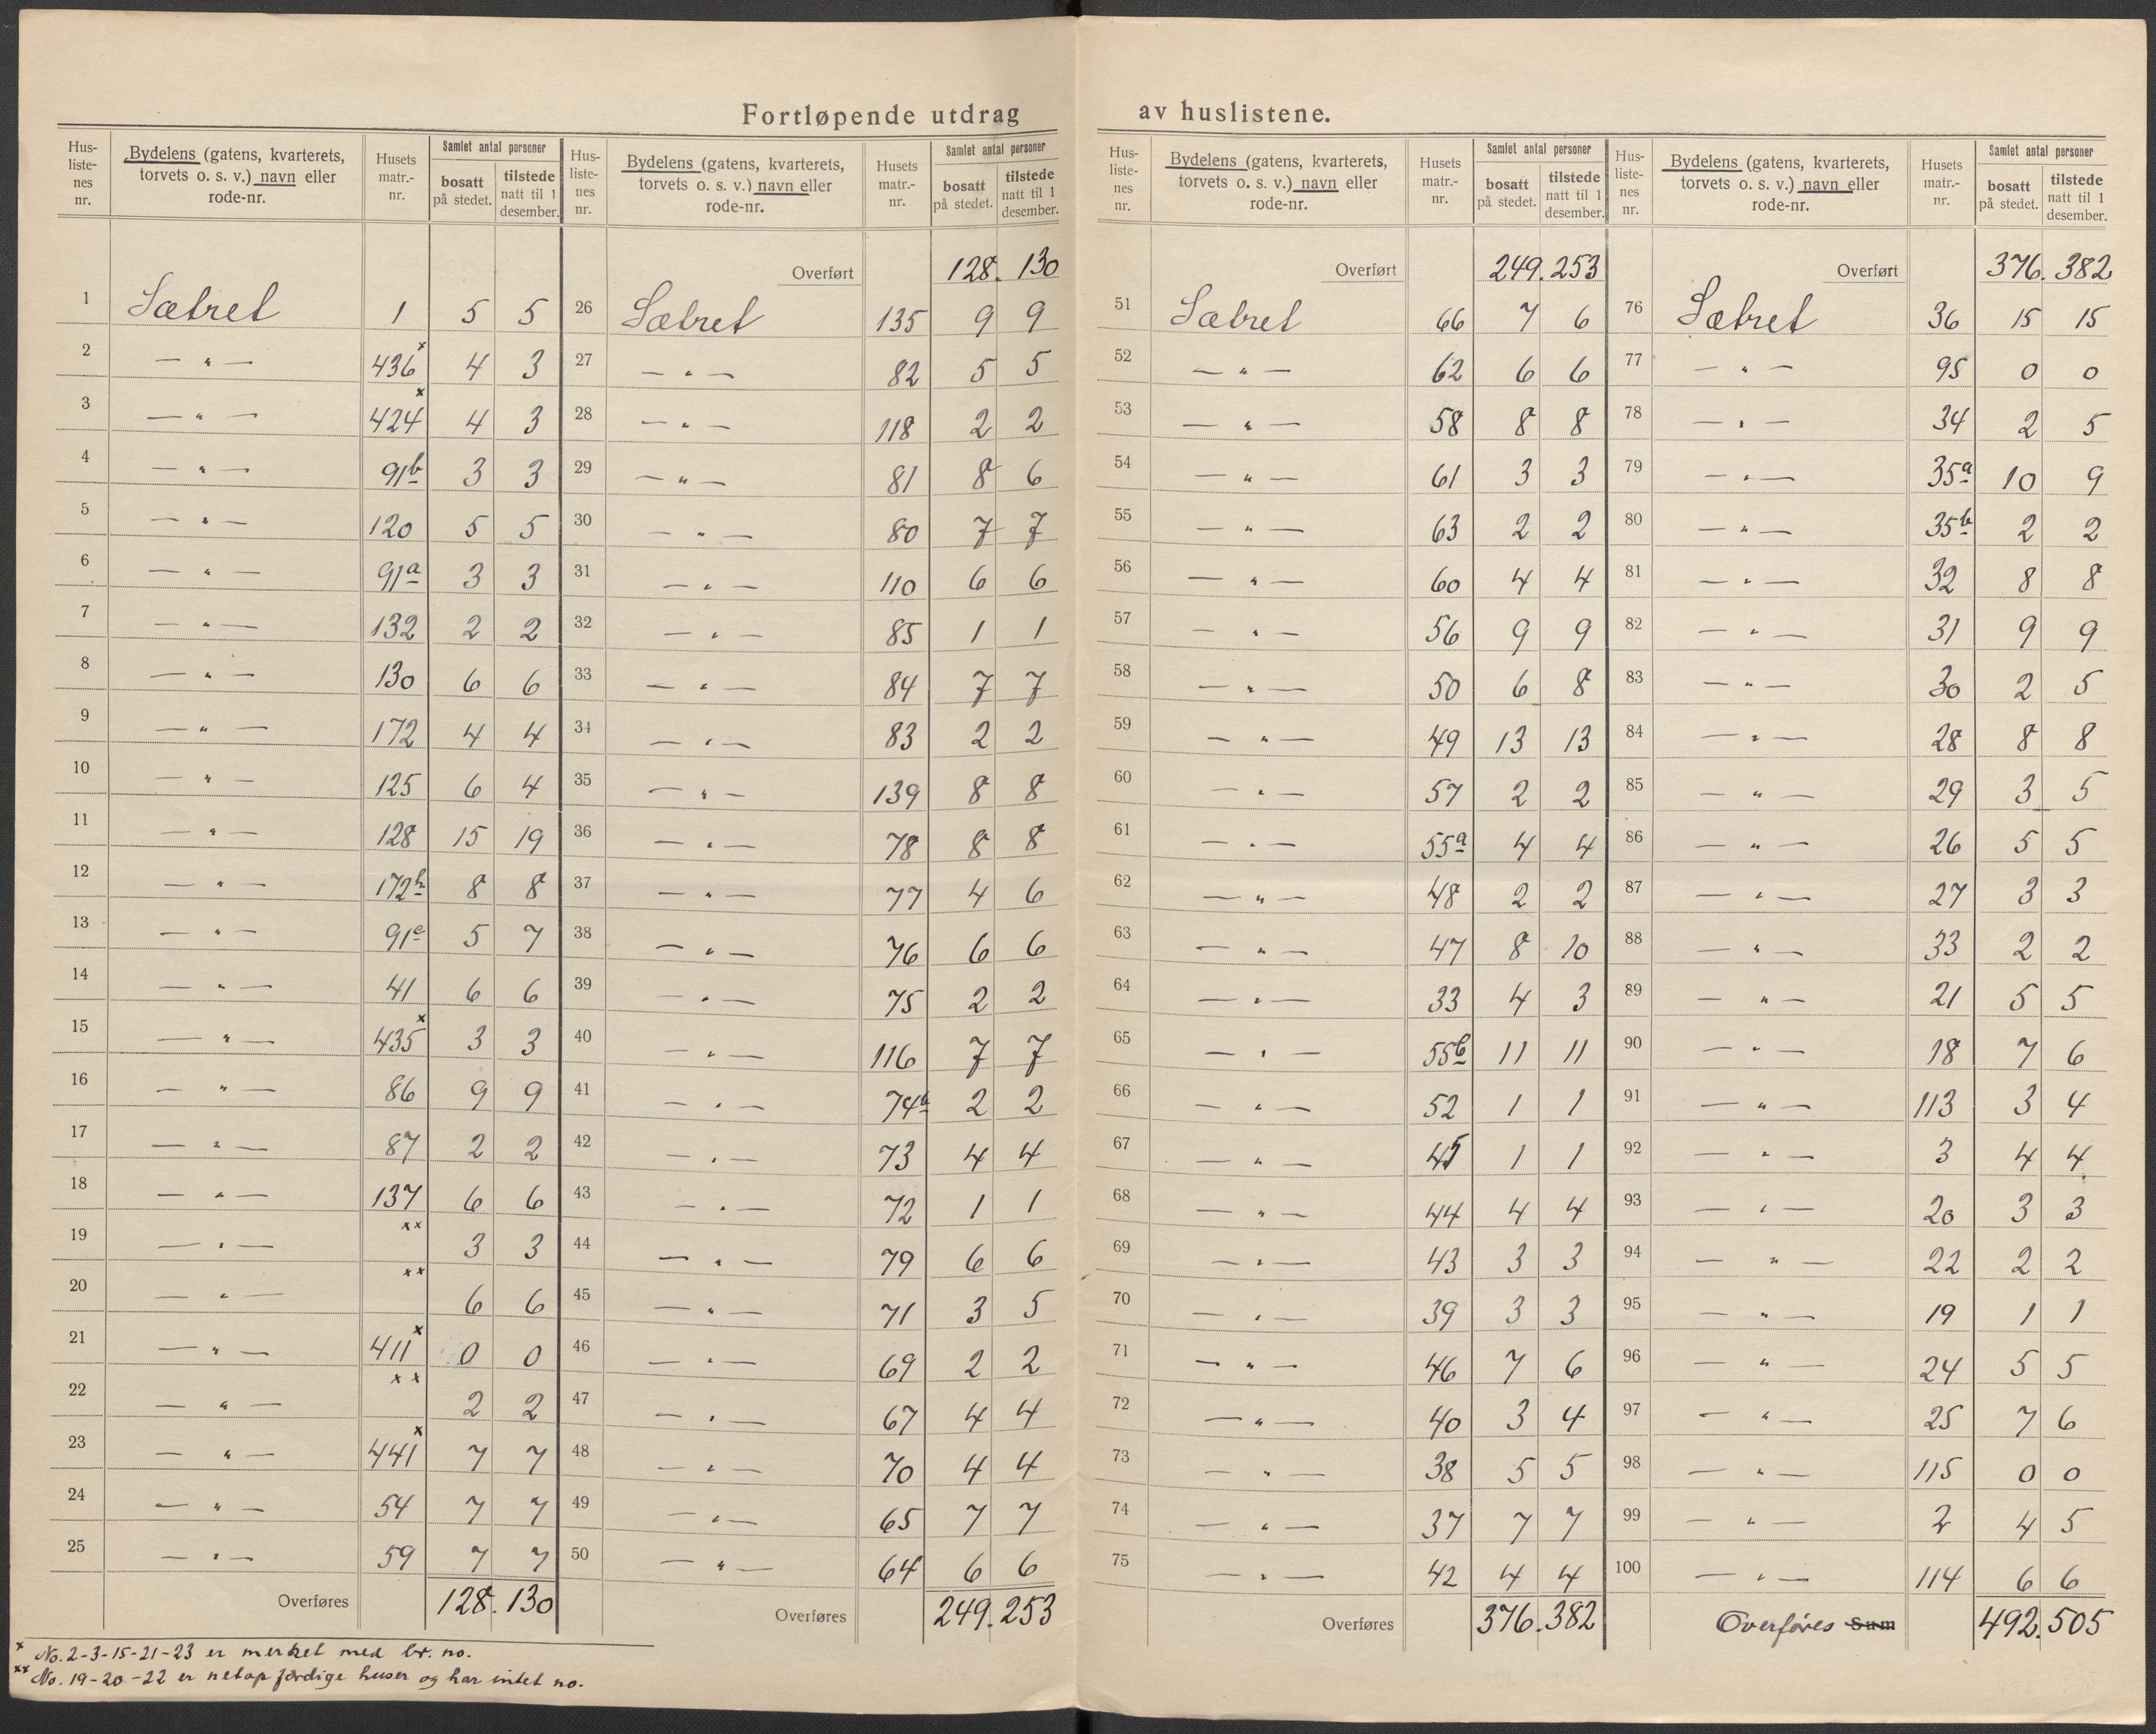 Fortløpende utdrag av huslistene.
Hus-listenes nr. | Bydelens (gatens, kvarterets, torvets o. s. v.) navn eller rode-nr. | Husets matr.-nr. | Samlet antal personer bosatt på stedet. | tilstede natt til 1 desember.
1 Sætret 1 5 5
2 — " — 436 x 4 3
3 — " — 424 x 4 3
4 — " — 91b 3 3
5 — " — 120 5 5
6 — " — 91a 3 3
7 — " — 132 2 2
8 — " — 130 6 6
9 — " — 172 4 4
10 — " — 125 6 4
11 — " — 128 15 19
12 — " — 172b 8 8
13 — " — 91c 5 7
14 — " — 41 6 6
15 — " — 435 x 3 3
16 — " — 86 9 9
17 — " — 87 2 2
18 — " — 137 6 6
19 — " — xx 3 3
20 — " — xx 6 6
21 — " — 411 x 0 0
22 — " — xx 2 2
23 — " — 441 x 7 7
24 — " — 54 7 7
25 — " — 59 7 7
Overføres 128. 130
x No. 2-3-15-21-23 er merket med br. no.
xx No. 19-20-22 er netop færdige huser og har intet no.
Hus-listenes nr. | Bydelens (gatens, kvarterets, torvets o. s. v.) navn eller rode-nr. | Husets matr.-nr. | Samlet antal personer bosatt på stedet. | tilstede natt til 1 desember.
Overført 128. 130
26 Sætret 135 9 9
27 — " — 82 5 5
28 — " — 118 2 2
29 — " — 81 8 6
30 — " — 80 7 7
31 — " — 110 6 6
32 — " — 85 1 1
33 — " — 84 7 7
34 — " — 83 2 2
35 — " — 139 8 8
36 — " — 78 8 8
37 — " — 77 4 6
38 — " — 76 6 6
39 — " — 75 2 2
40 — " — 116 7 7
41 — " — 74b 2 2
42 — " — 73 4 4
43 — " — 72 1 1
44 — " — 79 6 6
45 — " — 71 3 5
46 — " — 69 2 2
47 — " — 67 4 4
48 — " — 70 4 4
49 — " — 65 7 7
50 — " — 64 6 6
Overføres 249. 253
Hus-listenes nr. | Bydelens (gatens, kvarterets, torvets o. s. v.) navn eller rode-nr. | Husets matr.-nr. | Samlet antal personer bosatt på stedet. | tilstede natt til 1 desember.
Overført 249. 253
51 Sætret 66 7 6
52 — " — 62 6 6
53 — " — 58 8 8
54 — " — 61 3 3
55 — " — 63 2 2
56 — " — 60 4 4
57 — " — 56 9 9
58 — " — 50 6 8
59 — " — 49 13 13
60 — " — 57 2 2
61 — " — 55a 4 4
62 — " — 48 2 2
63 — " — 47 8 10
64 — " — 33 4 3
65 — " — 55b 11 11
66 — " — 52 1 1
67 — " — 45 1 1
68 — " — 44 4 4
69 — " — 43 3 3
70 — " — 39 3 3
71 — " — 46 7 6
72 — " — 40 3 4
73 — " — 38 5 5
74 — " — 37 7 7
75 — " — 42 4 4
Overføres 376. 382
Hus-listenes nr. | Bydelens (gatens, kvarterets, torvets o. s. v.) navn eller rode-nr. | Husets matr.-nr. | Samlet antal personer bosatt på stedet. | tilstede natt til 1 desember.
Overført 376. 382
76 Sætret 36 15 15
77 — " — 95 0 0
78 — " — 34 2 5
79 — " — 35a 10 9
80 — " — 35b 2 2
81 — " — 32 8 8
82 — " — 31 9 9
83 — " — 30 2 5
84 — " — 28 8 8
85 — " — 29 3 5
86 — " — 26 5 5
87 — " — 27 3 3
88 — " — 33 2 2
89 — " — 21 5 5
90 — " — 18 7 6
91 — " — 113 3 4
92 — " — 3 4 4
93 — " — 20 3 3
94 — " — 22 2 2
95 — " — 19 1 1
96 — " — 24 5 5
97 — " — 25 7 6
98 — " — 115 0 0
99 — " — 2 4 5
100 — " — 114 6 6
Overføres Sum 492. 505